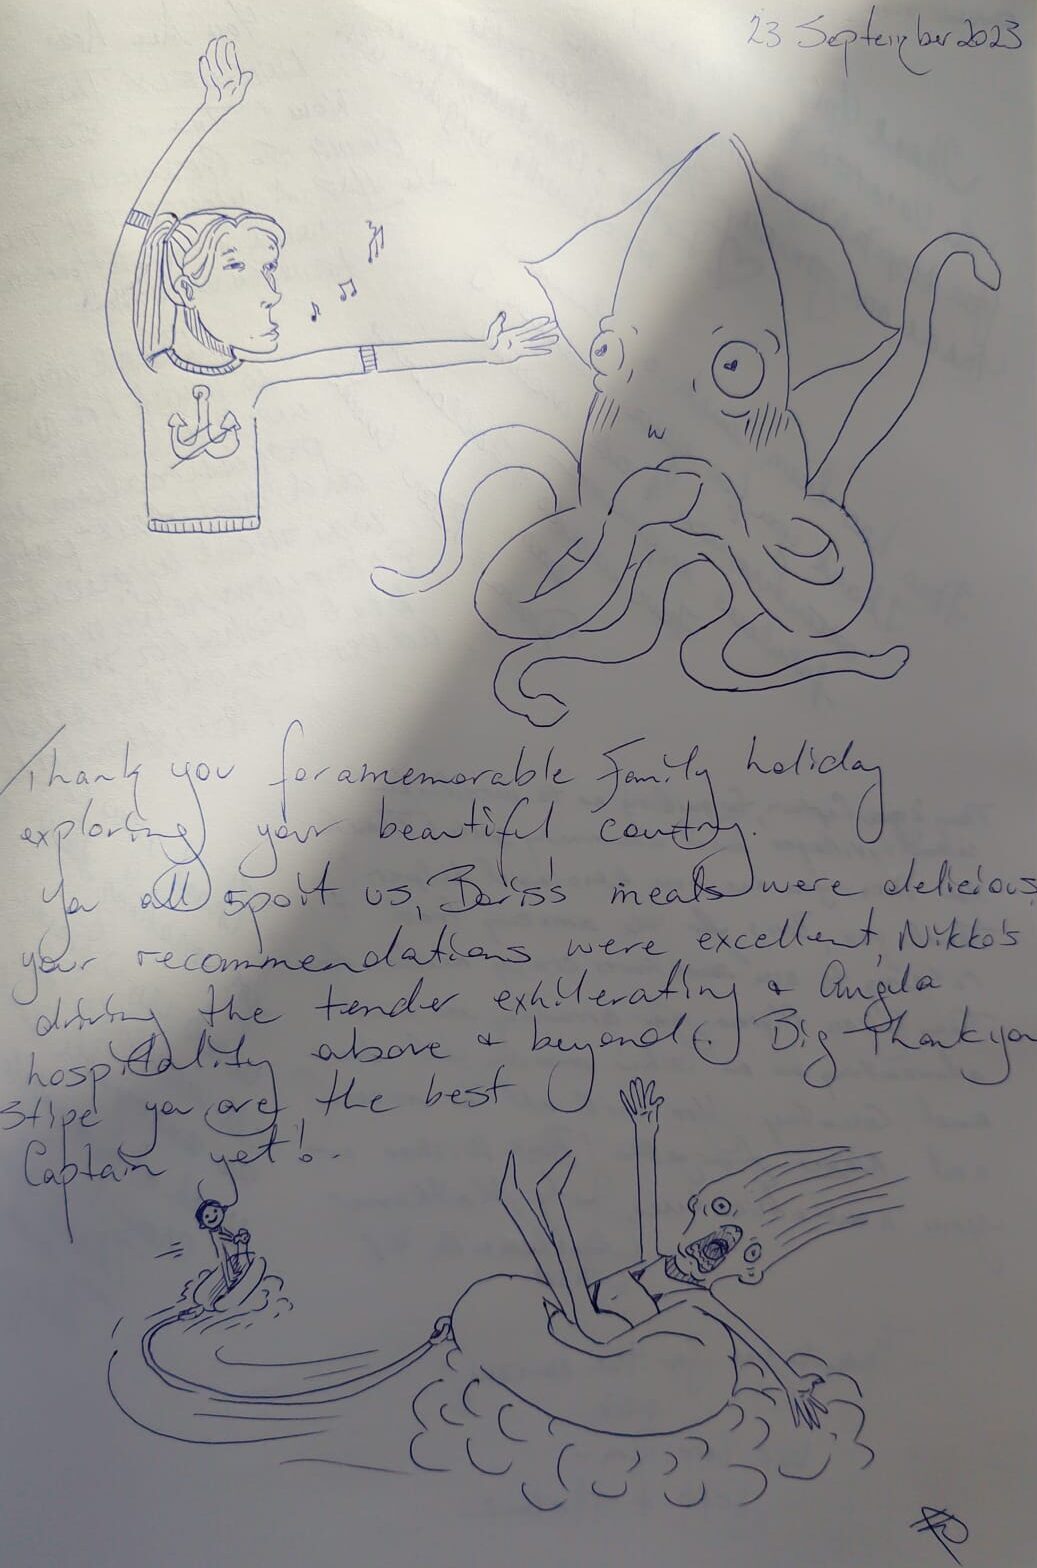 23 September 2023
Thank you for a memorable family holiday
exploring your beautiful country.
You all spoilt us, Boris's meals were delicious,
your recommendations were excellent, Nikko's
driving the tender exhilerating & Angela
hospitality above & beyond. Big Thank you
Stipe you are the best
Captain yet!